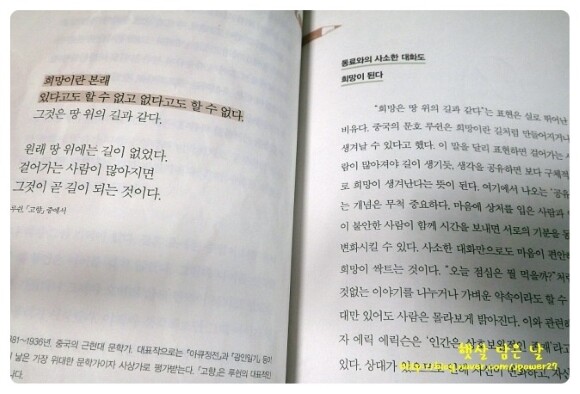 희망이란 본래
있다고도 할 수 없고 없다고도 할 수 없다.
그것은 땅 위의 길과 같다.
원래 땅 위에는 길이 없었다.
걸어가는 사람이 많아지면
그것이 곧 길이 되는 것이다.
루쉰, 『고향』 중에서
81~1936년. 중국의 근현대 문학가. 대표작으로는 『아큐정전』과 『광인일기』 등이
낳은 가장 위대한 문학가이자 사상가로 평가받는다. 『고향』은 루쉰의 대표적인
니다.
동료와의 사소한 대화도
희망이 된다
"희망은 땅 위의 길과 같다"는 표현은 실로 뛰어난
비유다. 중국의 문호 루쉰은 희망이란 길처럼 만들어지거나
생겨날 수 있다고 했다. 이 말을 달리 표현하면 걸어가는 사
람이 많아져야 길이 생기듯, 생각을 공유하면 보다 구체적
로 희망이 생겨난다는 뜻이 된다. 여기에서 나오는 '공유
는 개념은 무척 중요하다. 마음에 상처를 입은 사람과
이 불안한 사람이 함께 시간을 보내면 서로의 기분을
변화시킬 수 있다. 사소한 대화만으로도 마음이 편안
희망이 싹트는 것이다. "오늘 점심은 뭘 먹을까?"처
것없는 이야기를 나누거나 가벼운 약속이라도 할 수
대만 있어도 사람은 몰라보게 밝아진다. 이와 관련
자 에릭 에릭슨은 '인간은 상호보완적인 존재'라고
있다. 상대가 있으므로
햇살 담은 날